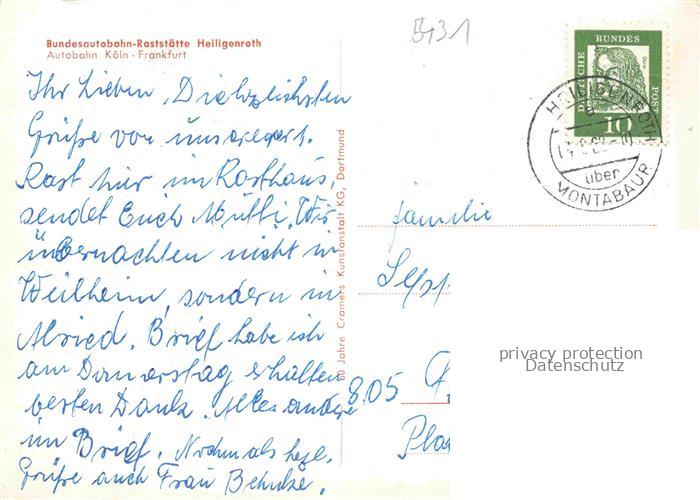 Bundesautobahn-Raststätte Heiligenroth
Autobahn Köln - Frankfurt
Ihr Lieben, Die herzlichsten
Grüße von unserer
Rast hier im Rasthaus,
sendet Euch Mutti. Wir
übernachten nicht in
Weilheim, sondern in
Alried. Brief habe ich
am Donnerstag erhalten
besten Dank. Alles andere
im Brief. Nochmals herzl.
Grüße auch Frau Behnke.
60 Jahre Cramers Kunstanstalt KG, Dortmund
5431
DEUTSCHE BUNDES POST
10
HEILIGENROTH
über
MONTABAUR
familie
805
privacy protection
Datenschutz